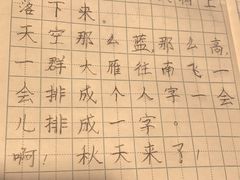 落下来。
天空那么蓝那么高,
一群大雁往南飞一
会排成个人字一会
儿排成一字。
啊！秋天来了!